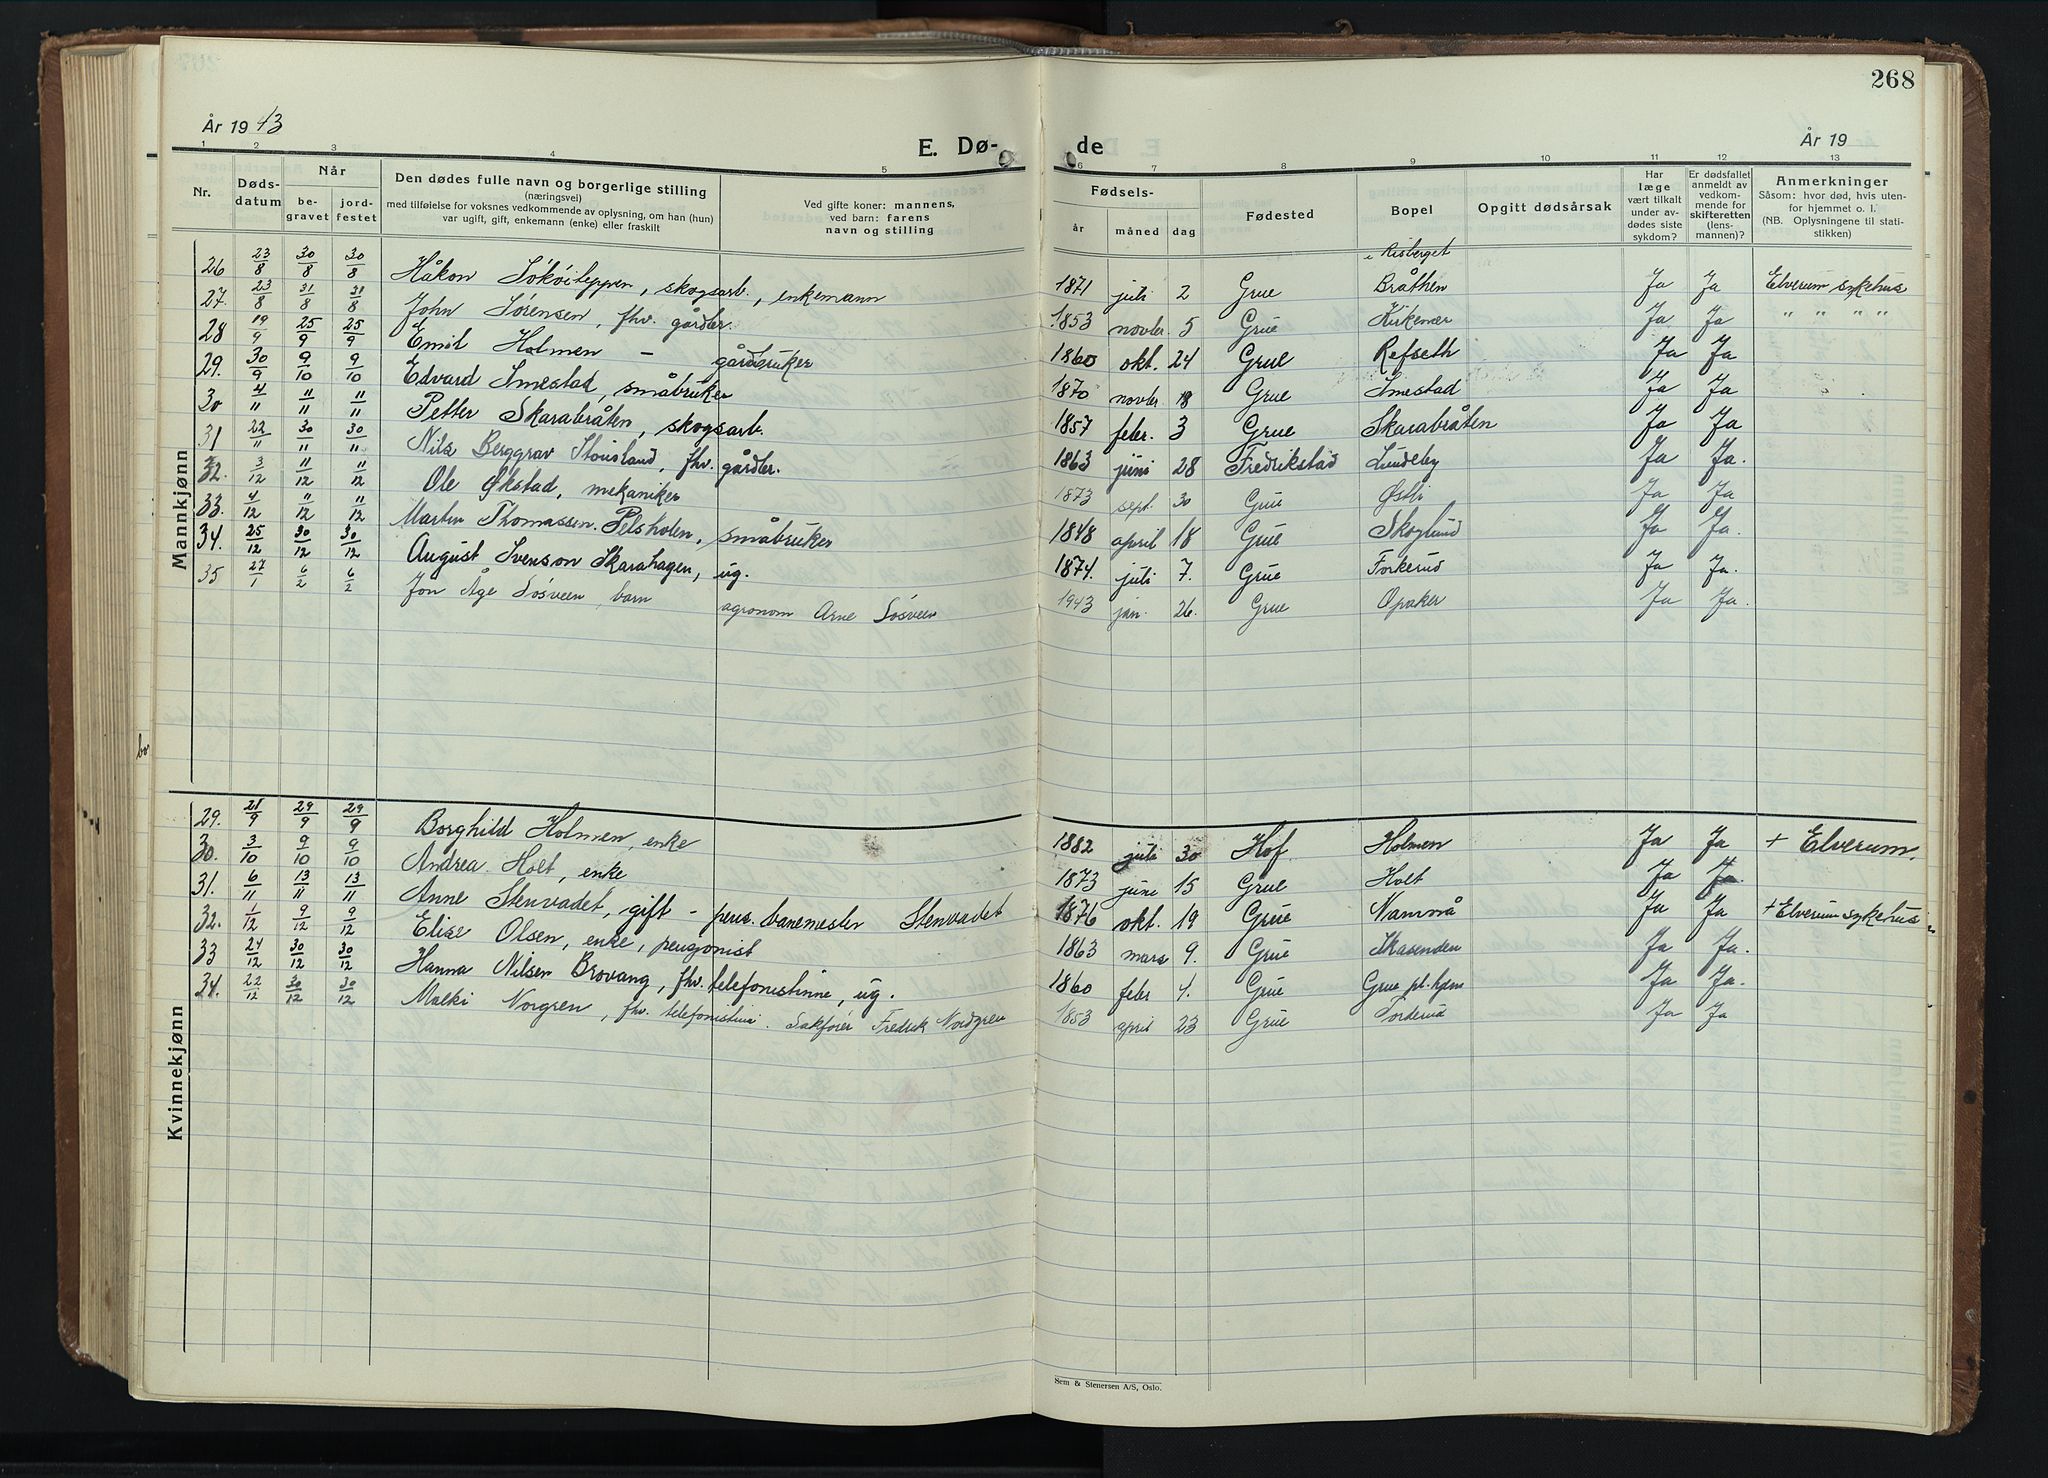 268
År 19 43
E. Dø-
de
År 19
1 2 3 4 5 6 7 8 9 10 11 12 13
Nr.
Døds-
datum
Når
be-
gravet
jord-
festet
Den dødes fulle navn og borgerlige stilling
(næringsvei)
med tilføielse for voksnes vedkommende av oplysning, om han (hun)
var ugift, gift, enkemann (enke) eller fraskilt
Ved gifte koner: mannens,
ved barn: farens
navn og stilling
Fødsels-
år måned dag
Fødested
Bopel
Opgitt dødsårsak
Har
læge
vært tilkalt
under av-
dødes siste
sykdom?
Er dødsfallet
anmeldt av
vedkom-
mende for
skifteretten
(lens-
mannen)?
Anmerkninger
Såsom: hvor død, hvis uten-
for hjemmet o. l.
(NB. Oplysningene til stati-
stikken)
Mannkjønn
i Risberget
26 23/8 30/8 30/8 Håkon, skogsarb., enkemann 1871 juli 2 Grue Bråthen Ja Ja Elverum sykehus
27. 23/8 31/8 31/8 John Sørensen, fhv. gårdbr. 1853 novbr. 5 Grue Kirkenær Ja Ja " " " "
28 19/9 25/9 25/9 Emil Holmen – gårdbruker 1860 okt. 24 Grue Refseth Ja Ja
29. 30/9 9/10 9/10 Edvard Smestad, småbruker 1870 novbr 18 Grue Smestad Ja Ja
30 4/11 11/11 11/11 Petter Skarabråten, skogsarb. 1857 febr. 3 Grue Skarabråten Ja Ja
31 22/11 30/11 30/11 Nils Berggrav, fhv. gårdbr. 1863 juni 28 Fredrikstad Lundeby Ja Ja.
32. 3/12 11/12 11/12 Ole Økstad, mekaniker 1873 sept. 30 Grue Østbi Ja Ja
33. 4/12 11/12 11/12 Martin Thomassen Pelsholen, småbruker 1848 april 18 Grue Skoglund Ja Ja.
34. 25/12 30/12 30/12 August Svenson Skarahagen, ug. 1874. juli 7. Grue Forkerud Ja Ja.
35 27/1 6/2 6/2 Jon Åge Løsveen, barn agronom Arne Løsveen 1943 jan. 26. Grue Opaker Ja Ja.
Kvinnekjønn
29. 21/9 29/9 29/9 Borghild Holmen, enke 1882 juli 30 Hof. Holmen Ja Ja + Elverum.
30. 3/10 9/10 9/10 Andrea Holt, enke 1873 juni 15 Grue Holt Ja Ja
31. 6/11 13/11 13/11 Anne Stenvadet, gift – pens. banemester Stenvadet 1876 okt. 19 Grue Namnå Ja Ja + Elverum sykehus
32. 1/12 9/12 9/12 Elise Olsen, enke, pensjonist 1863 mars 9. Grue Skasenden Ja Ja.
33 24/12 30/12 30/12 Hanna Nilsen Brovang, fhv. telefonistinne, ug. 1860 febr 4. Grue Grue pl.hjem Ja Ja.
34. 22/12 30/12 30/12 Malki Norgren, fhv. telefonistin. Sakfører Fredrik Nordgren 1853 april 23 Grue Torderud Ja Ja
Sem & Stenersen A/S, Oslo.